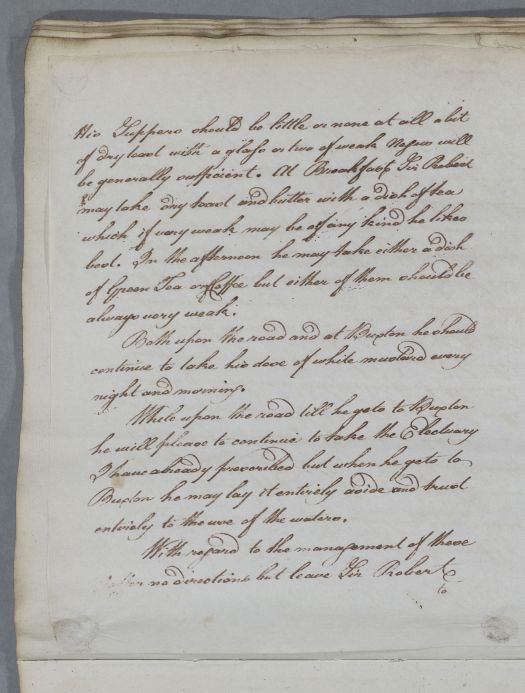 His Suppers should be little or none at all a bit
of dry toast with a glass or two of weak Negus will
be generally sufficient. At Breakfast Sir Robert
may take dry toast and butter with a dish of tea
which if very weak may be of any kind he likes
best. In the afternoon he may take either a dish
of Green Tea or Coffee but either of them should be
always very weak.
Both upon the road and at Buxton he should
continue to take his dose of white mustard every
night and morning.
While upon the road till he gets to Buxton
he will please to continue to take the Electuary
I have already prescribed but when he gets to
Buxton he may lay it entirely aside and trust
entirely to the use of the waters.
With regard to the management of these
no directions but leave Sir Robert
to